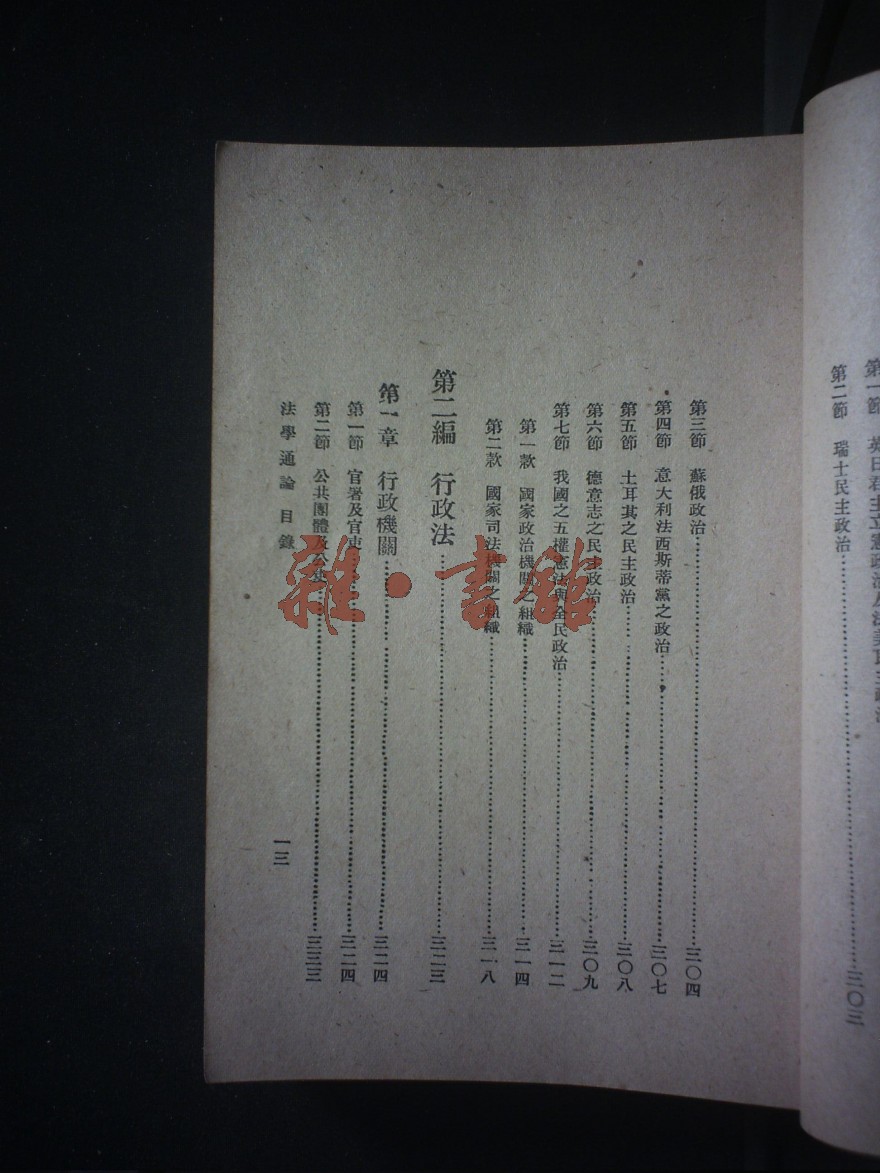 第二節 瑞士民主政治……三〇三
第三節 蘇俄政治……三〇四
第四節 意大利法西斯蒂黨之政治……三〇七
第五節 土耳其之民主政治……三〇八
第六節 德意志之民主政治……三〇九
第七節 我國之五權憲法與全民政治……三一二
第一款 國家政治機關之組織……三一四
第二款 國家司法機關之組織……三一八
第二編 行政法……三二三
第一章 行政機關……三二四
第一節 官署及官吏……三二四
第二節 公共團體及公吏……三三三
法學通論 目錄
一三
雜·書館